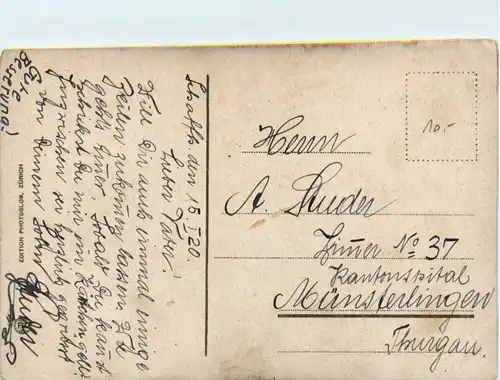 Schaffh. den 15. I. 20.
Lieber Vater!
Will Dir auch einmal einige
Zeilen zukommen lassen.
geht's Euch. Sobald Du kannst
Du mir
sei herzlich gegrüsst
von Deinem Sohn
Gute
Besserung!
EDITION PHOTOGLOB, ZÜRICH
10.-
Herrn
A. Studer
Zimmer No 37
Kantonsspital
Münsterlingen
Thurgau.